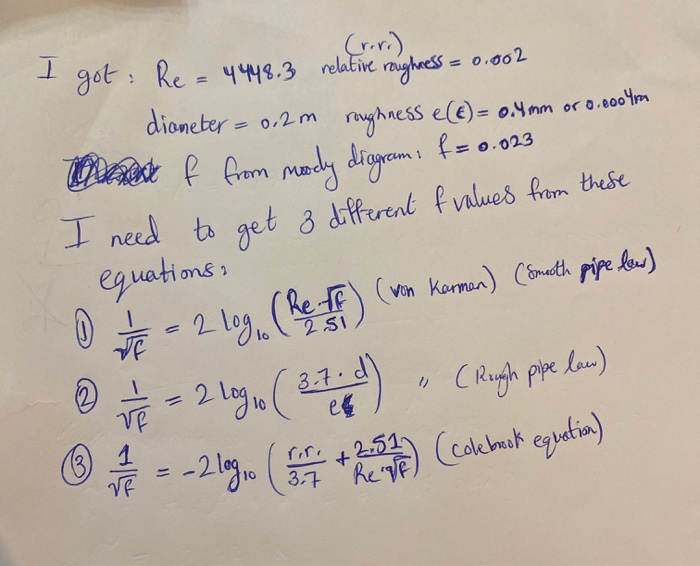 (r.r.)
I got : Re = 4448.3 relative roughness = 0.002
diameter = 0.2m roughness e(ϵ) = 0.4mm or 0.0004m
f from moody diagram: f = 0.023
I need to get 3 different f values from these
equations:
① 1/√f = 2 log₁₀ (Re·√f / 2.51) (von Karman) (Smooth pipe law)
② 1/√f = 2 log₁₀ (3.7 · d / e) " (Rough pipe law)
③ 1/√f = -2 log₁₀ (r.r. / 3.7 + 2.51 / Re·√f) (Colebrook equation)